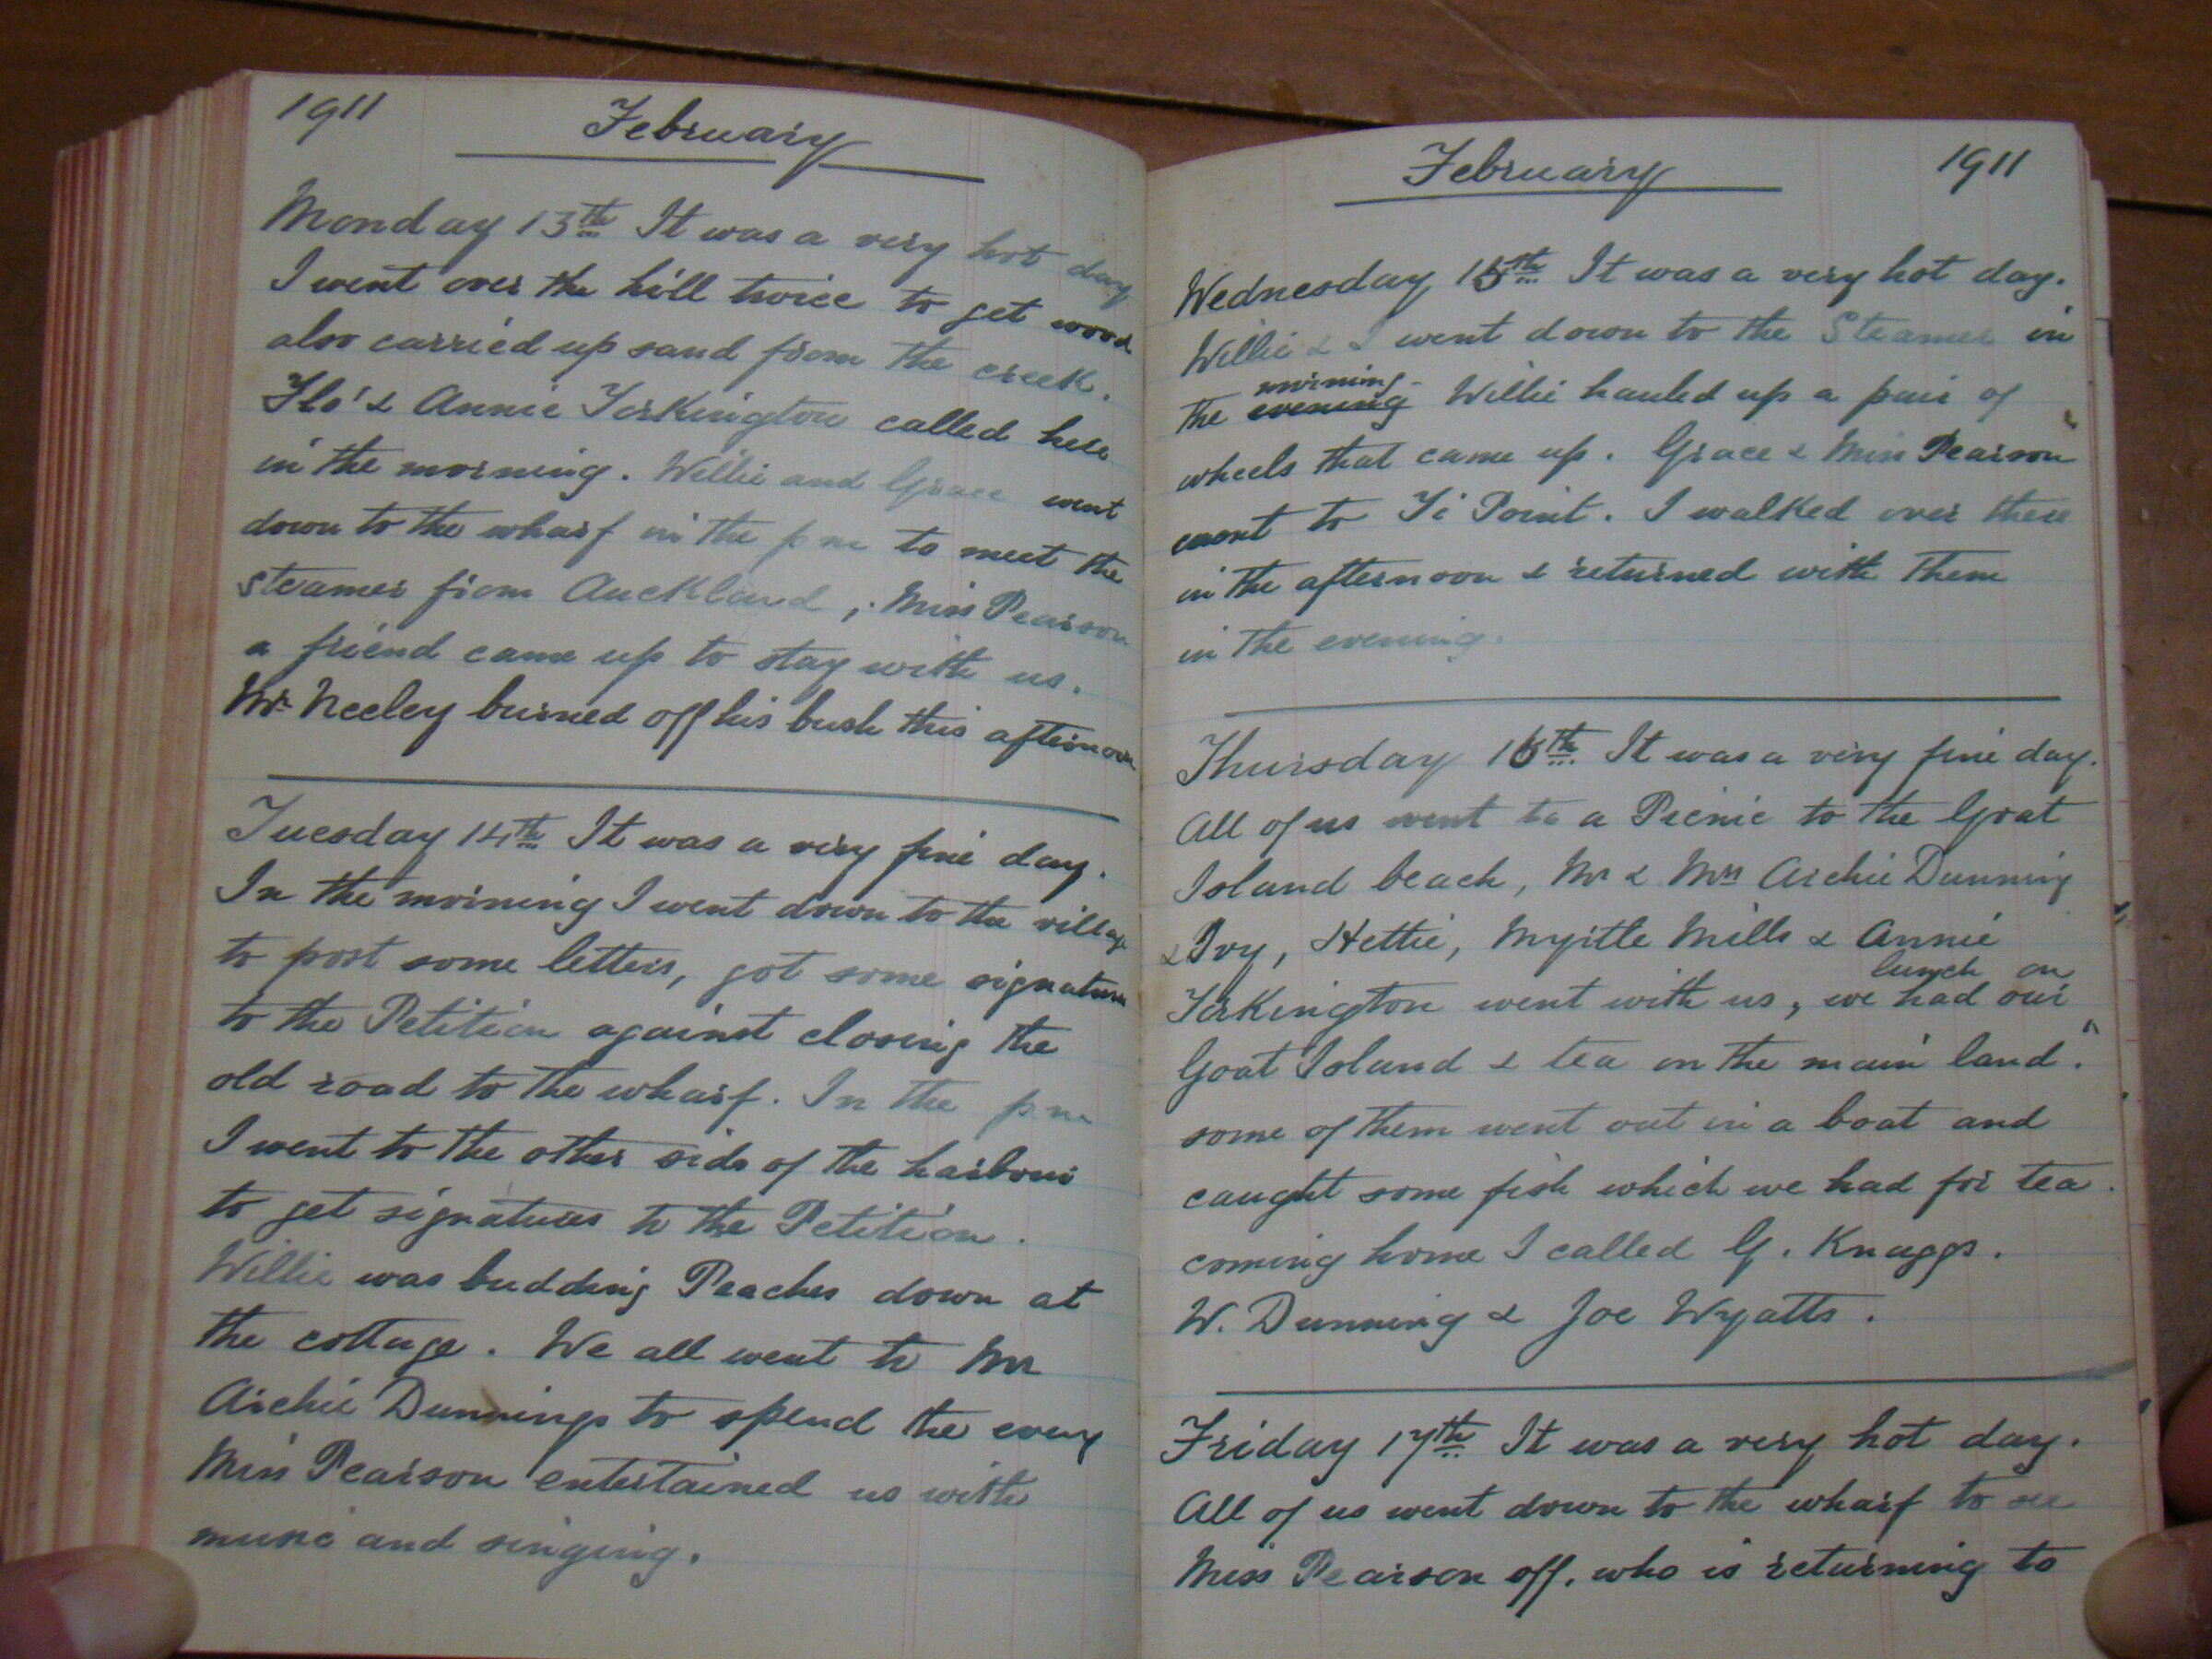 1911 February
Monday 13th It was a very hot day
I went over the hill twice to get wood
also carried up sand from the creek.
Flo' & Annie Torkington called here
in the morning. Willie and Grace went
down to the wharf in the pm to meet the
steamer from Auckland, Miss Pearson
a friend came up to stay with us.
Mr Neeley burned off his bush this afternoon
Tuesday 14th It was a very fine day.
In the morning I went down to the village
to post some letters, got some signatures
to the Petition against closing the
old road to the wharf. In the pm
I went to the other side of the harbour
to get signatures to the Petition.
Willie was budding Peaches down at
the cottage. We all went to Mr
Archie Dunnings to spend the eveng
Miss Pearson entertained us with
music and singing.
February 1911
Wednesday 15th It was a very hot day.
Willie & I went down to the Steamer in
morning
the evening Willie hauled up a pair of
wheels that came up. Grace & Miss Pearson
went to Ti Point. I walked over there
in the afternoon & returned with them
in the evening.
Thursday 16th It was a very fine day.
All of us went to a Picnic to the Goat
Island beach, Mr & Mrs Archie Dunning
& Ivy, Hettie, Myrtle Mills & Annie
lunch on
Torkington went with us, we had our
Goat Island & tea on the main land.
some of them went out in a boat and
caught some fish which we had for tea.
coming home I called G. Knaggs.
W. Dunning & Joe Wyatts.
Friday 17th It was a very hot day.
All of us went down to the wharf to see
Miss Pearson off. who is returning to